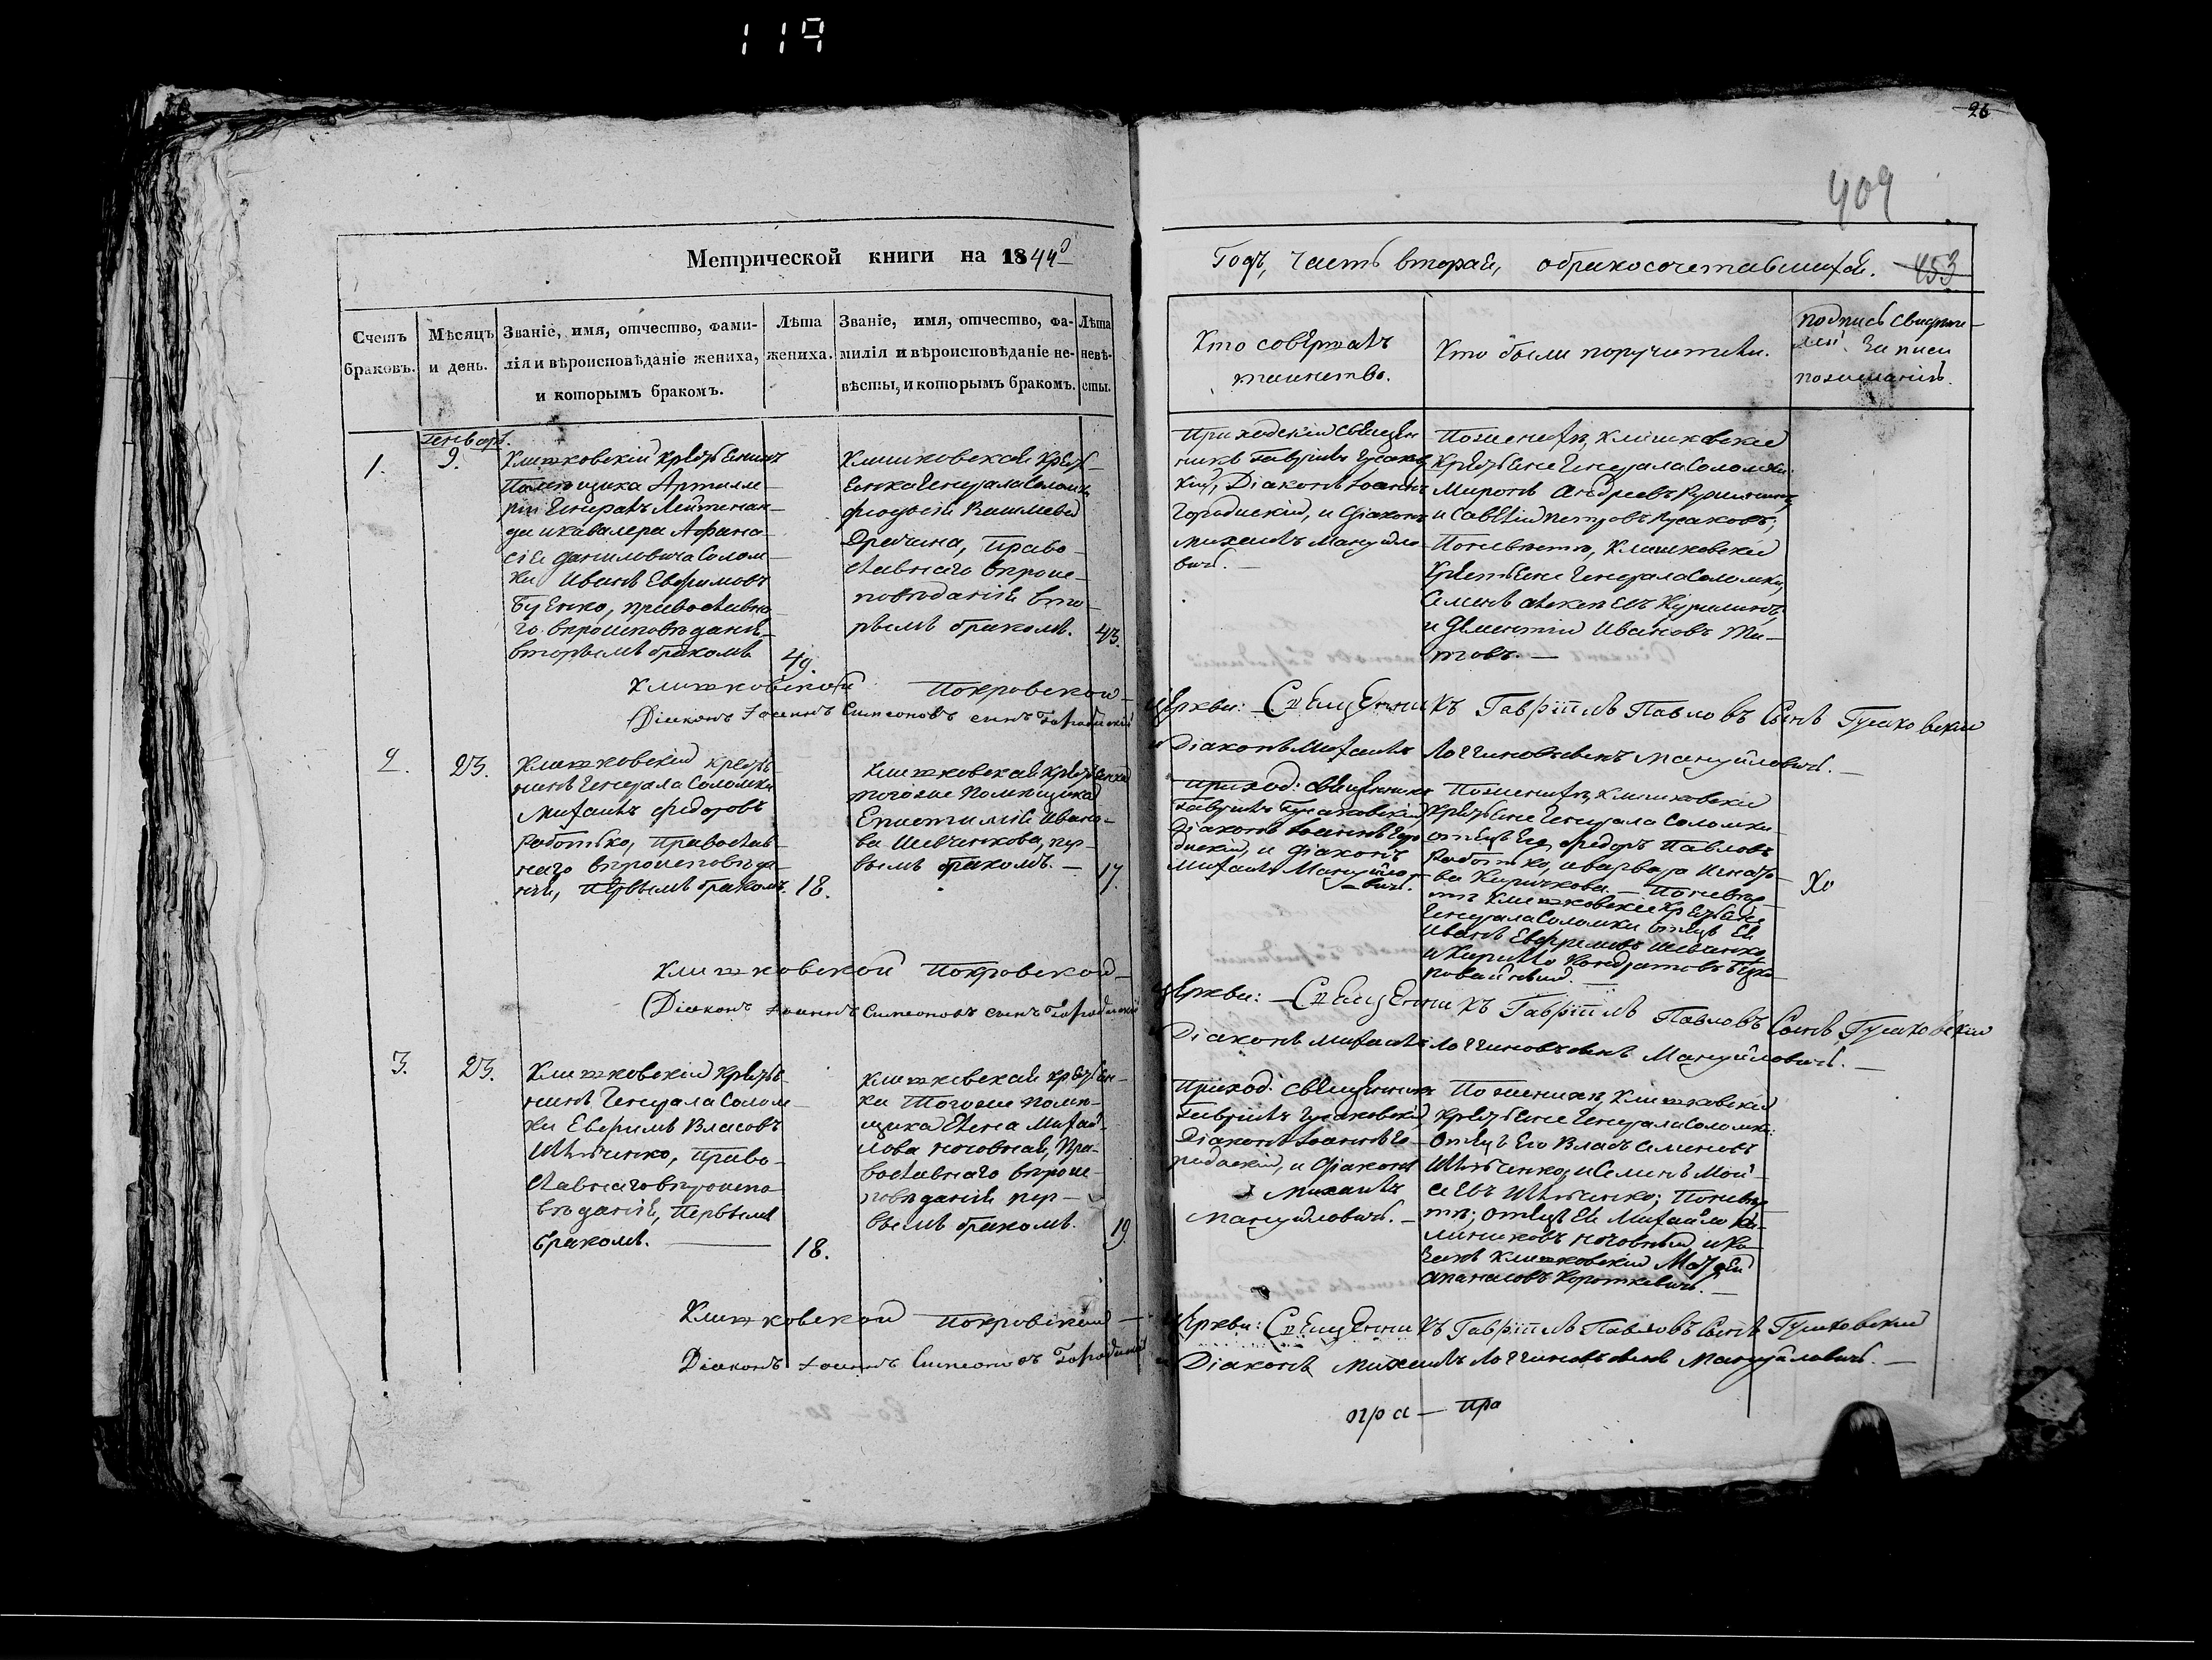 119
26
409
Метрической книги на 1844
Годъ, часть вторая, о бракосочетавшихся. 453
Счетъ браковъ.
Мѣсяцъ и день.
Званіе, имя, отчество, фами-
лія и вѣроисповѣданіе жениха,
и которымъ бракомъ.
Лѣта
жениха.
Званіе, имя, отчество, фа-
милія и вѣроисповѣданіе не-
вѣсты, и которымъ бракомъ.
Лѣта
невѣ-
сты.
Кто совершалъ
таинство.
Кто были поручители.
подпись свидѣте-
лей записи
по желанію.
Генваря
1.
9.
Клишковскій крестьянинъ
Помѣщика Артилле-
ріи Генералъ Лейтенан-
та и кавалера Афана-
сія Даниловича Солом-
ки Иванъ Евфимовъ
Буенко, православна-
го вѣроисповѣданія,
вторымъ бракомъ
49.
Клишковская крестья-
янка Генерала Соломки
Феодосія Василіева
Драчина, Право-
славнаго вѣроис-
повѣданія вто-
рымъ бракомъ.
43.
Приходскій священ
никъ Гавріилъ Гусаков
кій, Діаконъ Іоаннъ
Городискій, и Діаконъ
Михаилъ Мануйло
вичъ.
По женихѣ, Клишковскіе
крестьяне Генерала Соломки
Миронъ Андреевъ
и Савелій Петровъ Русаковъ;
По невѣстѣ, Клишковскіе
крестьяне Генерала Соломки,
Семенъ Алексеевъ Куриминъ,
и Дементій Ивановъ Ти-
товъ.
Клишковской Покровской
церкви: Священникъ Гавріилъ Павловъ Сынъ Гусаковскій
Діаконъ Іоаннъ Симеоновъ сынъ Городискій
и Діаконъ Михаилъ Логгиновъ сынъ Мануйловичъ.
2.
23.
Клишковскій крестья
нинъ Генерала Соломки
Михаилъ Федоровъ
Работько, Православ-
наго вѣроисповѣда-
нія, первымъ бракомъ.
18.
Клишковская крестьянка
тогоже Помѣщика
Епистимія Ивано-
ва Шевченкова, пер-
вымъ бракомъ.
17.
Приход: священникъ
Гавріилъ Гусаковскій
Діаконъ Іоаннъ Горо
дискій, и Діаконъ
Михаилъ Мануйло
вичъ.
По женихѣ, Клишковскіе
крестьяне Генерала Соломки
отецъ его, Федоръ Павловъ
Работько, и Варвара Игнать-
ва Киричкова. По невѣс-
тѣ Клишковскіе крестьяне
Генерала Соломки отецъ Ея
Иванъ Евфимовъ Шевченко,
и Кирилло Кондратовъ
Клишковской Покровской
церкви: Священникъ Гавріилъ Павловъ Сынъ Гусаковскій
Діаконъ Іоаннъ Симеоновъ сынъ Городискій
и Діаконъ Михаилъ Логгиновъ сынъ Мануйловичъ.
3.
23.
Клишковскій крестья
нинъ Генерала Солом-
ки Евфимъ Власовъ
Ильченко, Право-
славнаго вѣроиспо
вѣданія, Первымъ
бракомъ.
18.
Клишковская крестьян-
ка тогоже помѣ-
щика Елена Михай-
лова Ночовная, Пра-
вославнаго вѣроис-
повѣданія пер-
вымъ бракомъ.
19
Приход: священникъ
Гавріилъ Гусаковскій
Діаконъ Іоаннъ Го-
родискій, и Діаконъ
Михаилъ
Мануйловичъ.
По женихѣ, Клишковскіе
крестьяне Генерала Соломки:
Отецъ Его Власъ Семеновъ
Ильченко, и Семенъ Мой-
сеевъ Ильченко; По невѣс
тѣ; отецъ Ея Михайло Ка-
линиковъ Ночовный и Ка-
закъ Клишковскій Матвей
Апанасовъ Короткевичъ.
Клишковской Покровской
церкви: Священникъ Гавріилъ Павловъ Сынъ Гусаковскій
Діаконъ Іоаннъ Симеоновъ Городискій
и Діаконъ Михаилъ Логгиновъ сынъ Мануйловичъ.